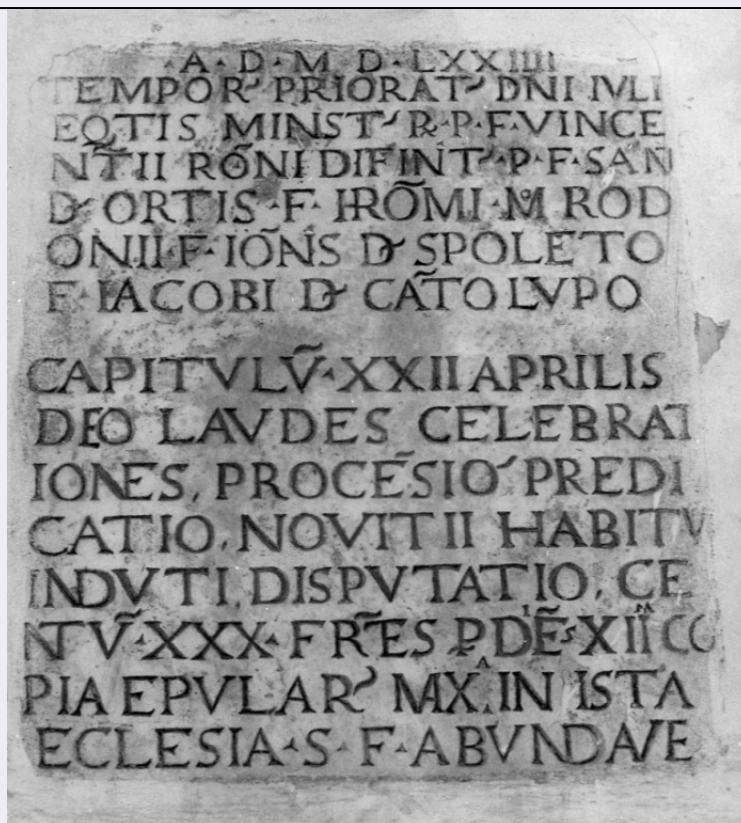 ·A·D·M D·LXXIIII
TEMPOR' PRIORAT' DNI IVLI
EQTIS MINST' R·P·F·VINCE
NTII RŌNI DIFINT'·P·F·SAN
D' ORTIS·F·HRŌMI·M ROD
ONII·F·IOÑS D' SPOLETO
F·IACOBI D' CÃTO LVPO
CAPITVLṼ·XXII APRILIS
DEO LAVDES CELEBRAT
IONES, PROCESIO' PREDI
CATIO, NOVITII HABITV
INDVTI, DISPVTATIO, CE
NTṼ·XXX·FRẼS P DIẼS XII CO
PIA EPVLAR' MX IN ISTA
ECLESIA·S·F·ABVNDAVE